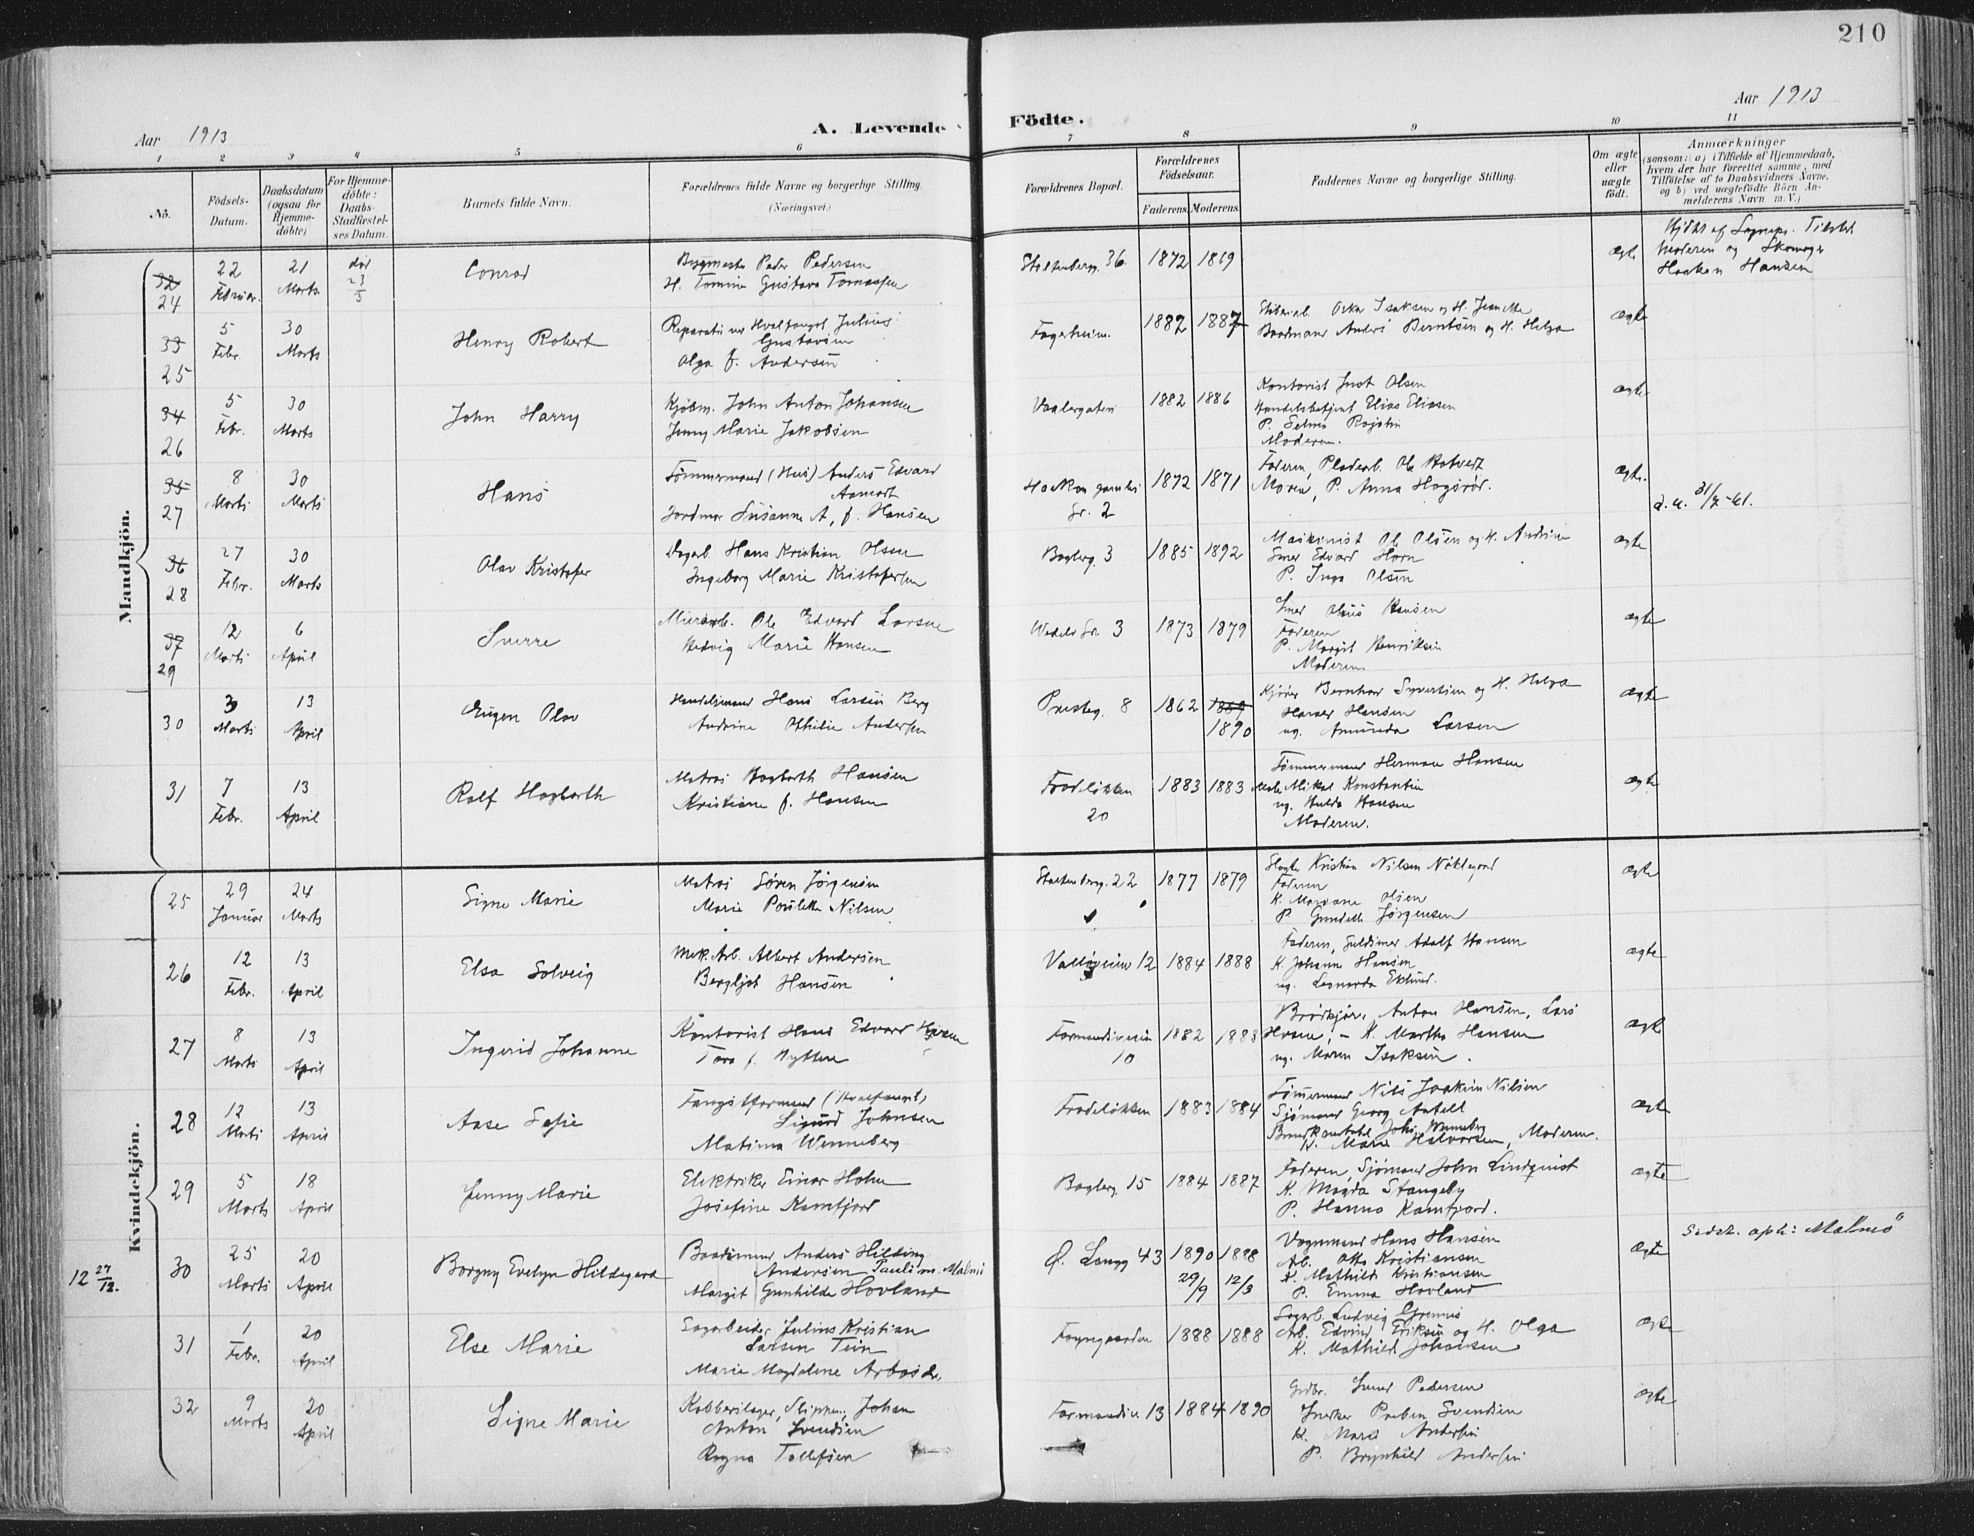 210
Aar 1913
A. Levende
Födte.
Aar 1913
1 2 3 4 5 6 7 8 9 10 11
No.
Födsels-
Datum.
Daabsdatum
(ogsaa for
Hjemme-
döbte)
For Hjemme-
döbte:
Daabs-
Stadfæstel-
ses Datum.
Barnets fulde Navn.
Forældrenes fulde Navne og borgerlige Stilling.
(Næringsvei.)
Forældrenes Bopæl.
Forældrenes
Födselsaar.
Faderens.
Moderens.
Faddernes Navne og borgerlige Stilling.
Om ægte
eller
uægte
födt.
Anmærkninger
(saasom: a) i Tilfælde af Hjemmedaab,
hvem der har forrettet samme, med
Tilföielse af to Daabsvidners Navne,
og b) ved uegtefödte Börn An-
melderens Navn m.V.)
Mandkjön.
32
24
22
Februar.
21
Marts
død
23
5
Conrad
Peder Pedersen
H. Tomine Gustava Tomassen
Stoltenberg. 36.
1872 1869
ægte
Moderen og
Haakon Hansen
33
25
5
Febr.
30
Marts
Henry Robert
Hvalfangst Julius
Gustavsen
Olga f. Andersen
Fagerheim.
1882 1887
Oskar Isaksen og H. Jeanette
Baadmand Anders Berntsen og H. Helga
ægte
34
26
5
Febr.
30
Marts
John Harry
Kjøbm. John Anton Johansen
Jenny Marie Jakobsen
1882 1886
Kontorist Just Olsen
Handelsbetjent Elias Eliasen
P. Selma
Moderen.
ægte
35
27
8
Marts
30
Marts
Hans
Tømmermand (Hus) Anders Edvard
Aamodt
Jordmor Susanne A. f. Hansen
Gr. 2
1872 1871
Faderen, Pladearb. Ole
P. Anna Hagsrød.
ægte.
d. u. 31/7-41.
36
28
27
Febr.
30
Marts
Olav Kristofer
Dagarb. Hans Kristian Olsen
Ingeborg Marie Kristofersen
Baglerg. 3
1885 1892
Maskinist Ole Olsen og H. Andrine
Smed Edvard Horn
P. Inga Olsen
ægte
37
29
12
Marts
6
April
Sverre
Murarb. Ole Edvard Larsen
Hedvig Marie Hansen
Wedels Gr. 3
1873 1879
Smed Olaus Hansen
Faderen
P. Margit Henriksen
Moderen.
ægte
30
3
Marts
13
April
Eugen Olav
Handelsmand Hans Larsen Berg
Andrine Othilie Andersen
Presteg. 8
1862 1869
1890
Bernhard Syvertsen og H. Helga
Hansen
ug. Amunda Larsen
ægte
31
7
Febr.
13
April
Rolf Hagbarth
Matros Hagbarth Hansen
Kristiane f. Hansen
Frodeløkken
20
1883 1883
Tømmermand Herman Hansen
Mikal Konstantin
ug. Hulda Hansen
Moderen.
ægte
Kvindekjön.
25
29
Januar
24
Marts
Signe Marie
Matros Søren Jørgensen
Marie Poulette Nilsen
Stoltenberg. 22
1877 1879
Kristian Nilsen
Faderen
K. Olsen
P. Jørgensen
ægte
26
12
Febr.
13
April
Elsa Solveig
Mek. Arb. Albert Andersen
Bergljot Hansen
Valløveien 12
1884 1888
Faderen, Adolf Hansen
K. Johanne Hansen
ug. Leonarda Eklund.
ægte
27
8
Marts
13
April
Ingerid Johanne
Kontorist Hans Edvard
Tora f. Rytter
Formandsveien
10
1882 1883
Brødkjør. Anton Hansen, Lars
K. Martha Hansen
ug. Maren Isaksen.
ægte
28
12
Marts
13
April
Aase Sofie
Fangstformand (Hvalfangst)
Sigurd Johnsen
Matima Wenneberg
Frodeløkken
1883 1884
Tømmermand Nils Joakim Nilsen
Sjømand Georg Antell
Brandkonstabel Johs. Wenneberg
K. Marie Halvorsen, Moderen.
ægte
29
5
Marts
18
April
Jenny Marie
Elektriker Einar Holm
Josefine Kamfjord
Baglerg. 15
1884 1887
Faderen, Sjømand John Lindquist
K. Magda Stangeby
P. Hanna Kamfjord.
ægte
12 27/12.
30
25
Marts
20
April
Borgny Evelyn Hildegard
Baadsmand Anders Hilding
Andersen Pauli m. Malmø
Margit Gunhilde Hovland
Ø. Langg 43
1890 1888
29/9 12/3
Vognmand Hans Hansen
Arb. Otto Kristiansen
K. Mathilde Kristiansen
P. Emma Hovland
ægte
Malmø"
31
1
Febr.
20
April
Else Marie
Sagarbeider Julius Kristian
Larsen Tein
Marie Magdalene
Fayegaarden
1888 1888
Sagarb. Ludvig Grennes
Arb. Edvind Eriksen og H. Olga
K. Mathilde Johansen
ægte
32
9
Marts
20
April
Signe Marie
Johan
Anton Svendsen
Ragna Tollefsen
Formandsv. 13
1884 1890
Grdbr. Pedersen
Preben Svendsen
K. Marie Andersen
P. Brynhild Andersen
ægte